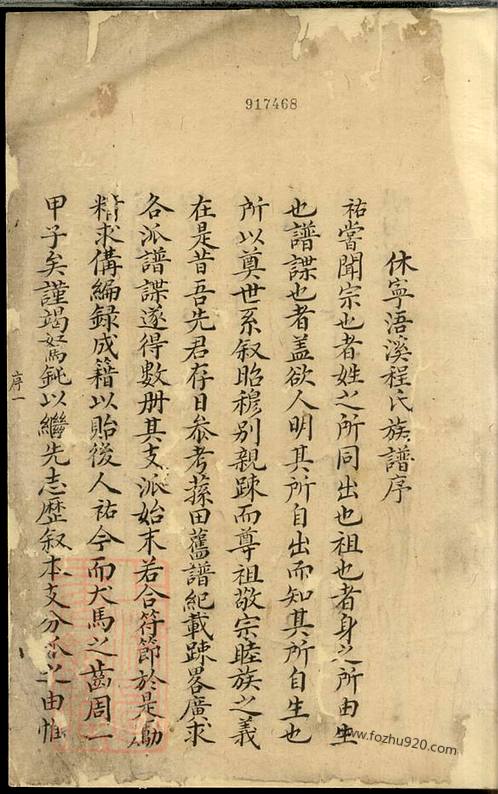 917468
休寧浯溪程氏族譜序
祐嘗聞宗也者姓之所同出也祖也者身之所由生
也譜諜也者盖欲人明其所自出而知其所自生也
所以奠世系叙昭穆别親踈而尊祖敬宗睦族之義
在是昔吾先君存日叅考蓀田舊譜紀載踈畧廣求
各派譜諜遂得数册其支派始末若合符節於是
精求俻編録成籍以貽後人祐今而犬馬之齒周一
甲子矣謹竭駑鈍以繼先志歷叙本支分派之由惟
序一
www.fozhu920.com